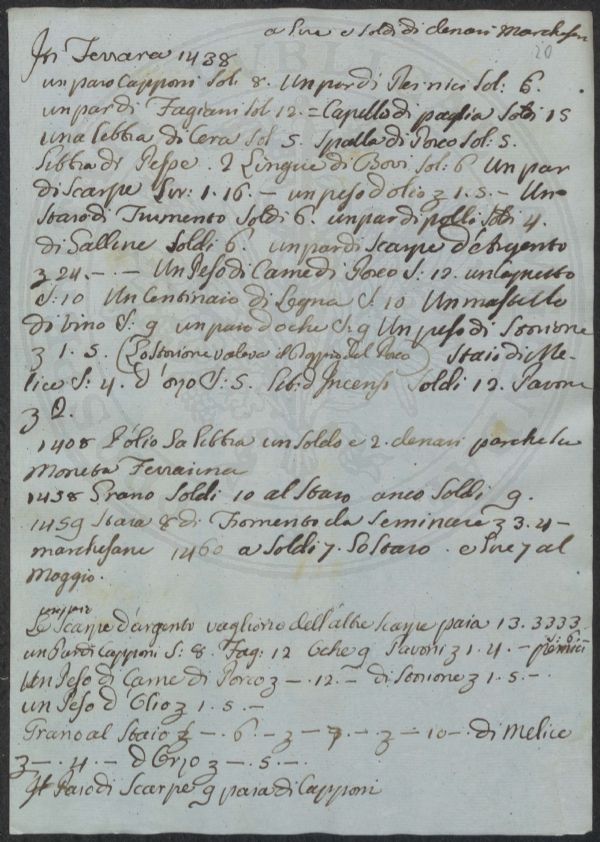 a lire e soldi di denari Marchesini
20
In Ferrara 1438
un paro Capponi Sol: 8. Un par di Pernici Sol: 6.
un par di Fagiani sol 12. = Capello di paglia Soldi 15
una libbra di Cera Sol 5. Spalla di Porco Sol: 5.
libbra di Pesse. 2 Lingue di Bovi sol: 6 Un par
di scarpe Lir: 1. 16. — un peso d'olio 3 1. 5. — Un
staro di Frumento Soldi 6. un par di polli Soldi 4.
di Galline Soldi 6. un par di scarpe d'Argento
3 24. — . — Un Peso di Carne di Porco S: 12. un Capretto
S: 10 Un Centinaio di Legna S: 10 Un mastello
di vino S: 9 un paro d'oche S: 9 Un peso di Storione
3 1. 5. (Lo storione valeva il doppio del Porco) Staio di Me-
lica S: 4. d'orzo S: 5. Lib: d'Incenso Soldi 12. Pavone
3 2.
1408 l'olio la libbra un soldo e 2. denari
Moneta Ferrarina
1438 Grano Soldi 10 al Staro anco Soldi 9.
1459 Stara 8 di Formento da seminare 3 3. 4 —
marchesane 1460 a soldi 7. lo staro. e lire 7 al
Moggio.
un paro
Le scarpe d'argento vagliono dell'altre scarpe paia 13. 3333
un Par di Capponi S: 8. Fag: 12 Oche 9 Pavoni 3 1. 4. — pernici S: 6:
Un Peso di Carne di Porco 3 —. 12. — di Storione 3 1. 5. —
un Peso d'Olio 3 1. 5. —
Grano al Staio 3 —. 6. — 3 — 7 — 3 — 10 —. di Melica
3 —. 4. — d'Orzo 3 —. 5. —.
Paio di Scarpe 9 paia di Capponi